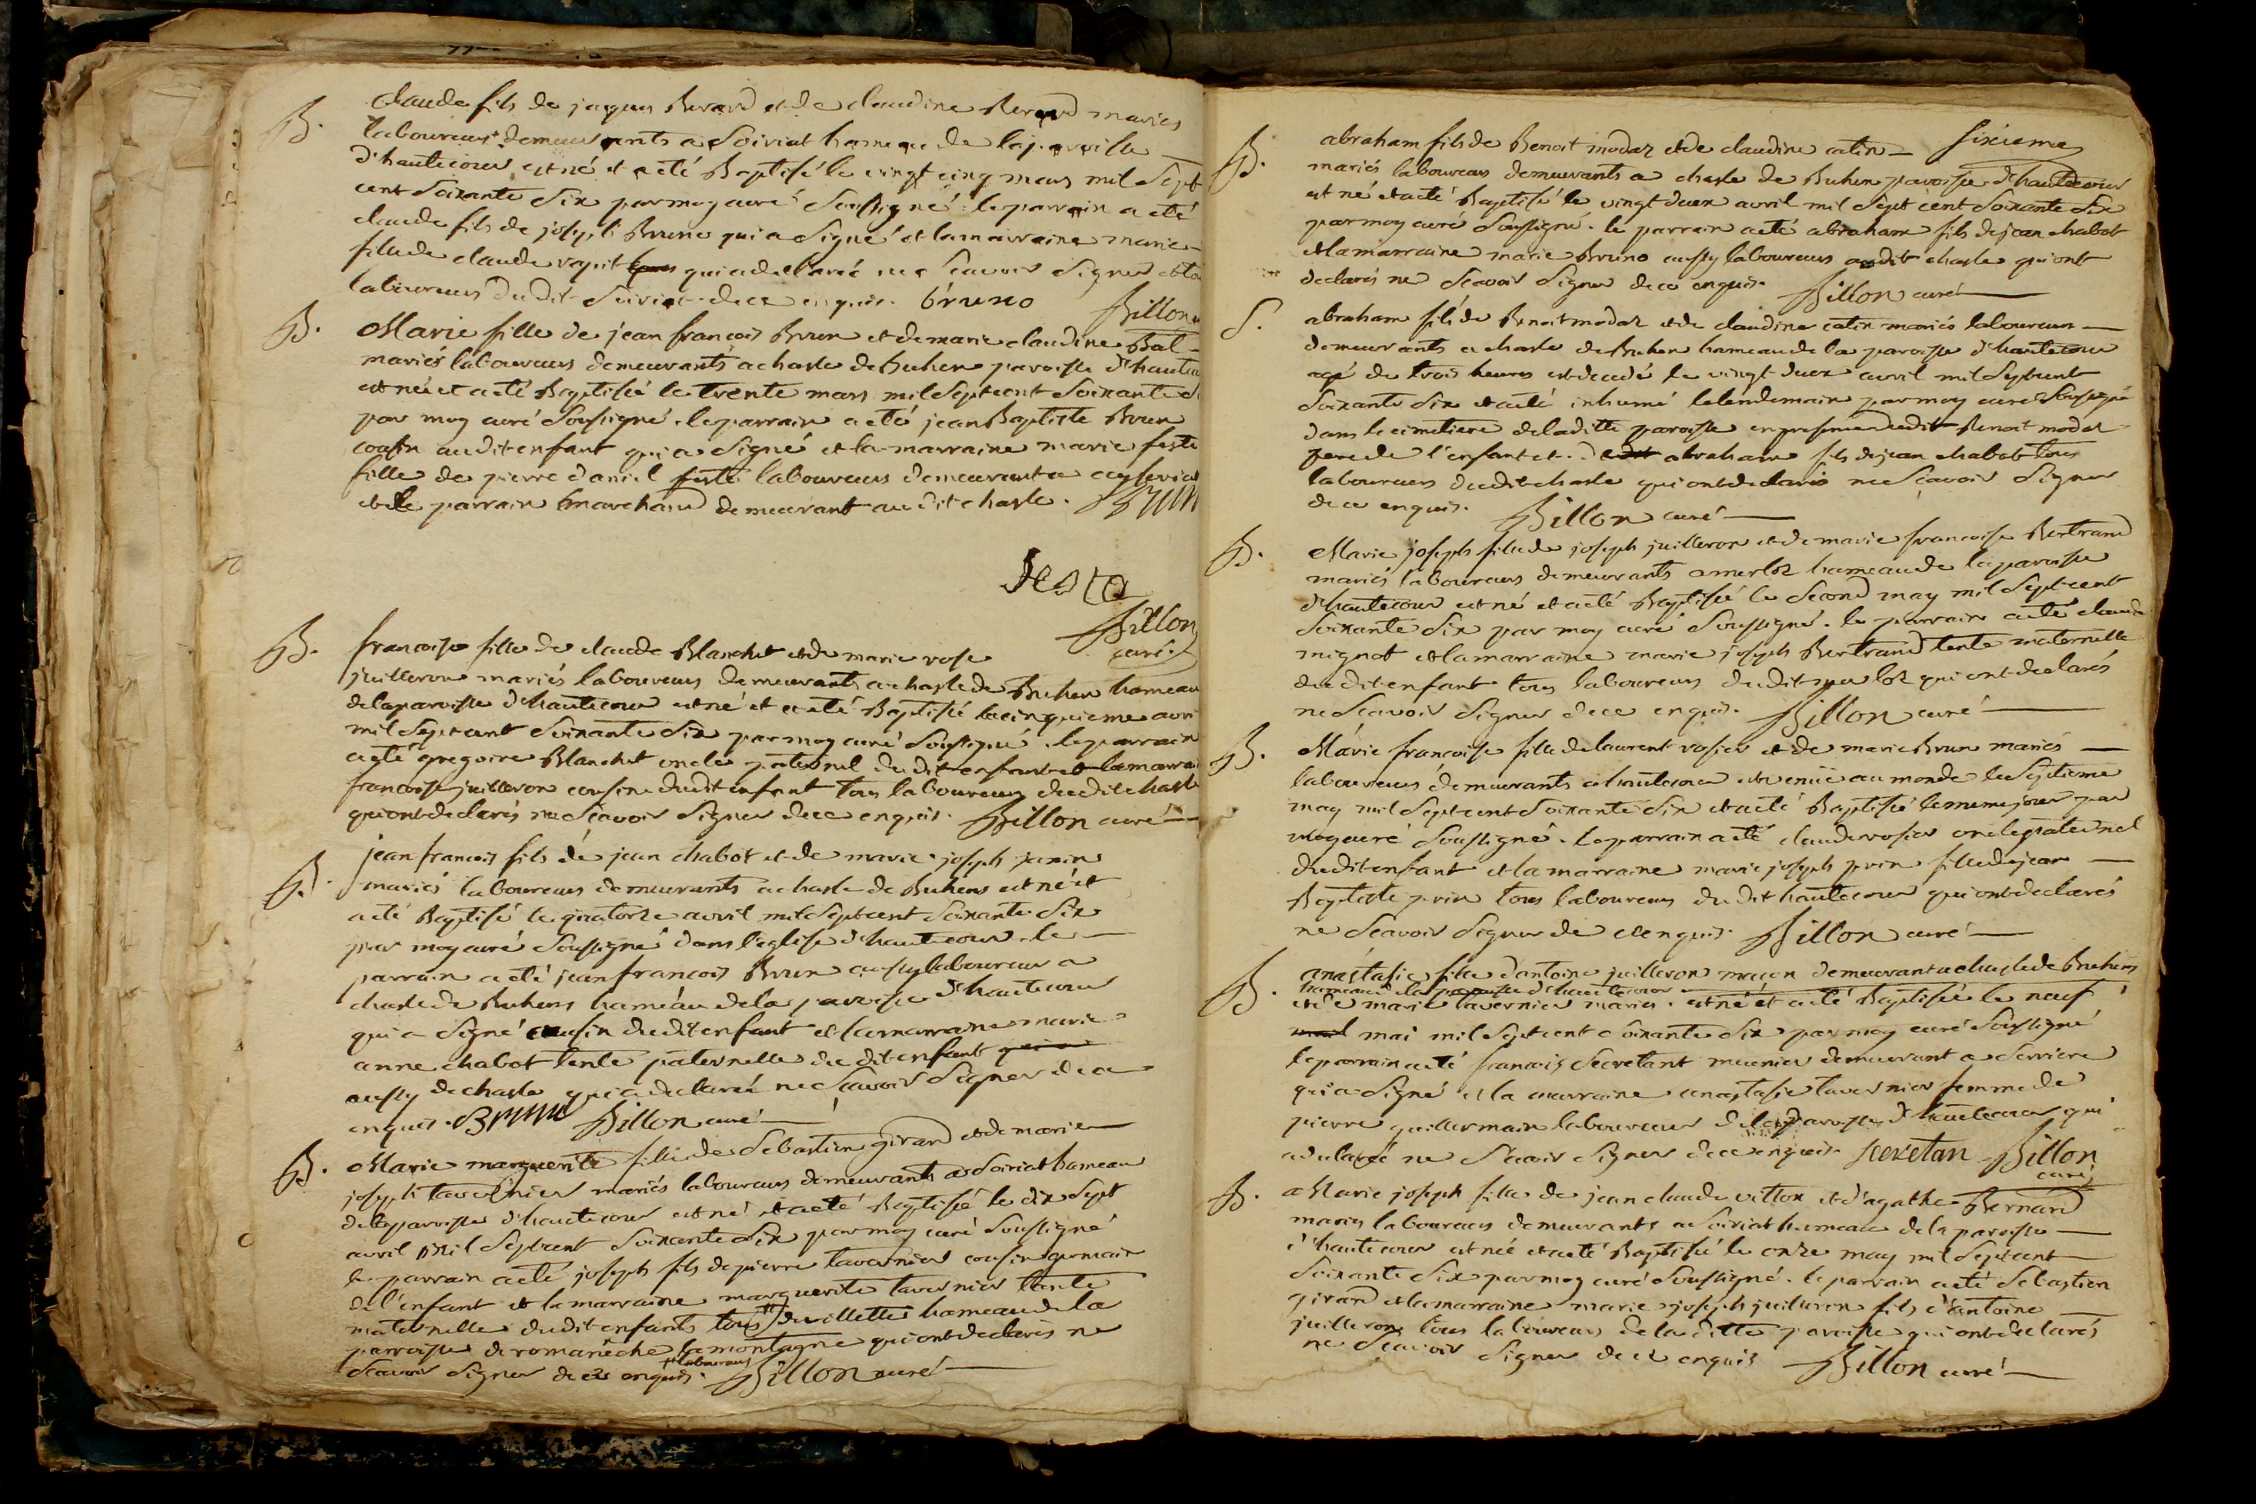 B. Claude fils de jaques Berard et de claudine Berard mariés
laboureurs demeurants a Soiriat hameau de la paroisse
d'hautecour est né et a eté Baptisé le vingt cinq mars mil Sept
cent Soixante Six par moy curé Soussigné le parrain a eté
claude fils de joseph Bruno qui a Signé et la marraine marie
fille de claude qui a declaré ne Scavoir Signer
laboureurs dudit Soiriat de ce enquis. bruno Billon
B. Marie fille de jean francois Brun et de marie claudine Bal
mariés laboureurs demeurants a chasle de Buhen paroisse d'hauteco
est né et a eté Baptisé le trente mars mil Sept cent Soixante S
par moy curé Soussigné. le parrain a eté jean Baptiste Brun
cousin audit enfant qui a Signé et la marraine marie feste
fille de pierre daniel feste laboureurs demeurant a
et le parrain marchand demeurant audit chasle. Brun
festa
Billon
curé
B. francoise fille de claude Blanchet et de marie rose
juilleron mariés laboureurs demeurants a chasle de Buhen hameau
de la paroisse d'hautecour est né et a eté Baptisé le cinquieme avri
mil Sept cent Soixante Six par moy curé Soussigné. le parrain
a eté gregoire Blanchet oncle paternel dudit enfant et la marrai
francoise juilleron cousine dudit enfant tous laboureurs dudit chasle
qui ont declarés ne Scavoir Signer de ce enquis. Billon curé
B. jean francois fils de jean chabot et de marie joseph janin
mariés laboureurs demeurants a chasle de Buhens est né et
a eté Baptisé le quatorze avril mil Sept cent Soixante Six
par moy curé Soussigné dans l'eglise d'hautecour. le
parrain a eté jean francois Brun aussy laboureur a
chasle de Buhens hameau de la paroisse d'hautecour
qui a Signé cousin dudit enfant et la marraine marie
anne chabot tente paternelle dudit enfant qui a
aussy de chasle qui a declaré ne Scavoir Signer de ce
enquis. Brun Billon curé
B. Marie marguerite fille de Sebastien girard et de marie
joseph tavernier mariés laboureurs demeurants a Soiriat hameau
de la paroisse d'hautecour est né et a eté Baptisé le dix Sept
avril mil Sept cent Soixante Six par moy curé Soussigné
le parrain a eté joseph fils de pierre tavernier cousin germain
de l'enfant et la marraine marguerite tavernier tente
maternelle dudit enfants tous de villette hameau de la
paroisse de romanêche la montagne qui ont declarés ne
laboureurs
Scavoir Signer de ce enquis. Billon curé
Sixieme
B. abraham fils de Benoit modaz et de claudine catin
mariés laboureurs demeurants a chasle de Buhen paroisse d'hautecour
est né et a eté Baptisé le vingt deux avril mil Sept cent Soixante Six
par moy curé Soussigné. le parrain a eté abraham fils de jean chabot
et la marraine marie Bruno aussy laboureurs audit chasle qui ont
declarés ne Scavoir Signer de ce enquis. Billon curé
S. abraham fils de Benoit modaz et de claudine catin mariés laboureurs
demeurants a chasle de Buhen hameau de la paroisse d'hautecour
agé de trois heures est decedé le vingt deux avril mil Sept cent
Soixante Six et a eté inhumé le lendemain par moy curé Soussigné
dans le cimetiere de laditte paroisse en presence dudit Benoit modaz
pere de l'enfant et dudit abraham fils de jean chabot tous
laboureurs dudit chasle qui ont declarés ne Scavoir Signer
de ce enquis. Billon curé
B. Marie joseph fille de joseph juilleron et de marie francoise Bertrand
mariés laboureurs demeurants a merloz hameau de la paroisse
d'hautecour est né et a eté Baptisé le Second may mil Sept cent
Soixante Six par moy curé Soussigné. le parrain a eté claude
mignot et la marraine marie joseph Bertrand tente maternelle
dudit enfant tous laboureurs dudit merloz qui ont declarés
ne Scavoir Signer de ce enquis. Billon curé
B. Marie francoise fille de laurent rosier et de marie Brun mariés
laboureurs demeurants a hautecour est venüe au monde le Septieme
may mil Sept cent Soixante Six et a eté Baptisé le meme jour par
moy curé Soussigné. le parrain a eté claude rosier oncle paternel
dudit enfant et la marraine marie joseph prin fille de jean
Baptiste prin tous laboureurs dudit hautecour qui ont declarés
ne Scavoir Signer de ce enquis. Billon curé
B. anastasie fille d'antoine juilleron maçon demeurant a chasle de Buhens
hameau de la paroisse d'hautecour
et de marie tavernier mariés. est né et a eté Baptisée le neuf
mai mil Sept cent Soixante Six par moy curé Soussigné
le parrain a eté francois Secretant meunier demeurant a Serriere
qui a Signé et la marraine anastasie tavernier femme de
pierre guillermain laboureur de la paroisse d'hautecour qui
a declaré ne Scavoir Signer de ce enquis. Secretan Billon
curé
B. Marie joseph fille de jean claude vitton et d'agathe Bernard
mariés laboureurs demeurants a Soiriat hameau de la paroisse
d'hautecour est née et a eté Baptisée le onze may mil Sept cent
Soixante Six par moy curé Soussigné. le parrain a eté Sebastien
girard et la marraine marie joseph juilleron fils d'antoine
juilleron tous laboureurs de laditte paroisse qui ont declarés
ne Scavoir Signer de ce enquis Billon curé